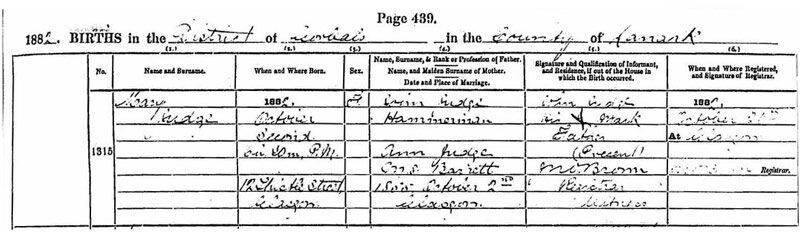 Page 439.
1882. BIRTHS in the District of Gorbals in the County of Lanark
(1.) (2.) (3.) (4.) (5.) (6.)
No. Name and Surname. When and Where Born. Sex. Name, Surname, & Rank or Profession of Father. Name, and Maiden Surname of Mother. Date and Place of Marriage. Signature and Qualification of Informant, and Residence, if out of the House in which the Birth occurred. When and Where Registered, and Signature of Registrar.
Mary 1882. F John Judge John Judge 1882.
Judge October Hammerman His X Mark October
Second Father At Glasgow
P.M. Ann Judge (Present)
1315
M.S. Barrett Registrar.
12 Street October 2nd Registrar
Glasgow Glasgow Witness